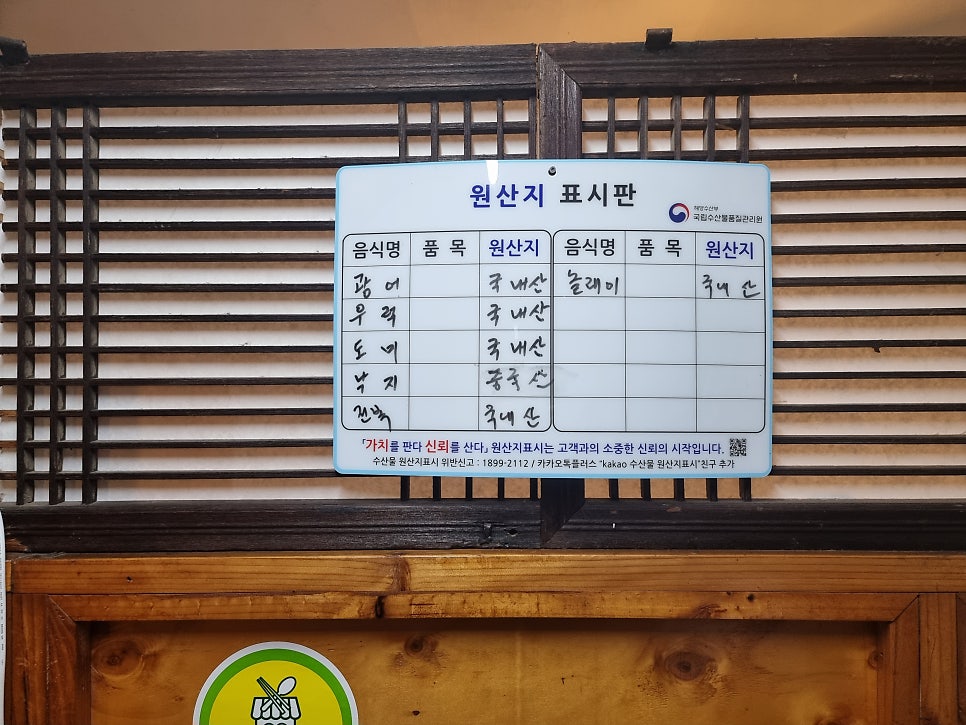 원산지 표시판
해양수산부
국립수산물품질관리원
음식명 품 목 원산지 음식명 품 목 원산지
광 어 국내산 놀래미 국내 산
우 럭 국내산
도 미 국내산
낙 지 중국산
전복 국내 산
「가치를 판다 신뢰를 산다」 원산지표시는 고객과의 소중한 신뢰의 시작입니다.
수산물 원산지표시 위반신고 : 1899-2112 / 카카오톡플러스 "kakao 수산물 원산지표시"친구 추가